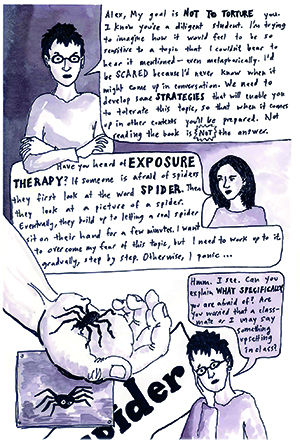 Alex, My goal is NOT TO TORTURE you.
I know you're a diligent student. I'm trying
to imagine how it would feel to be so
sensitive to a topic that I couldn't bear to
hear it mentioned — even metaphorically. I'd
be SCARED because I'd never know when it
might come up in conversation. We need to
develop some STRATEGIES that will enable you
to tolerate this topic, so that when it comes
up in other contexts you'll be prepared. Not
reading the book is NOT the answer.
Have you heard of EXPOSURE
THERAPY? If someone is afraid of spiders
they first look at the word SPIDER. Then
they look at a picture of a spider.
Eventually, they build up to letting a real spider
sit on their hand for a few minutes. I want
to overcome my fear of this topic, but I need to work up to it
gradually, step by step. Otherwise, I panic...
Hmm. I see. Can you
explain WHAT SPECIFICALLY
you are afraid of? Are
you worried that a class-
mate or I may say
something
upsetting
in class?
spider